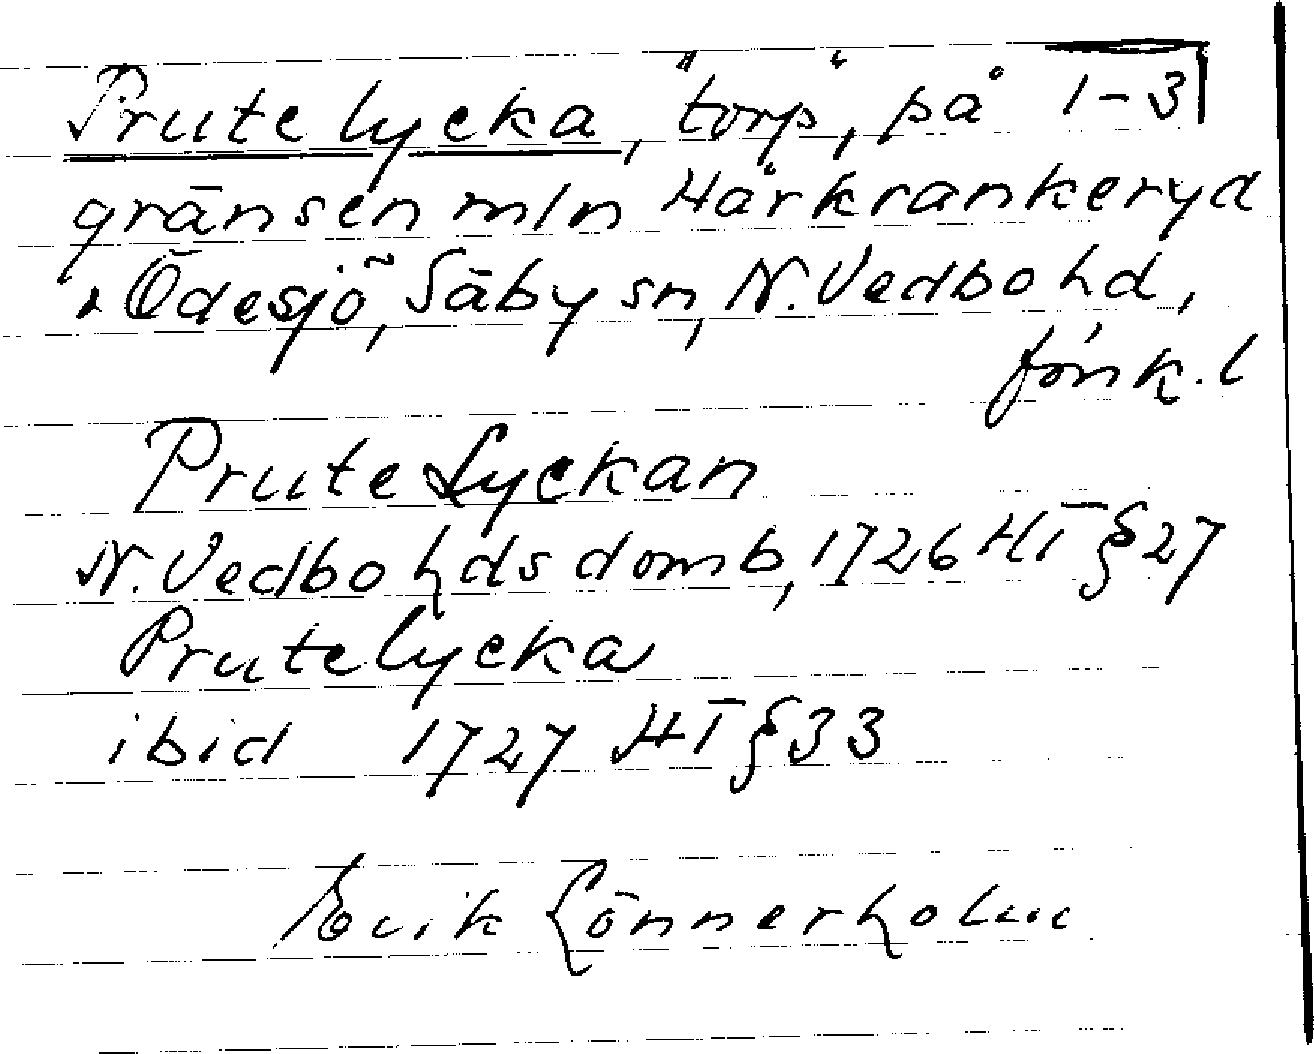 Prutelycka, "torp", på 1-3
gränsen mln Harkrankeryd
o Ödesjö, Säby sn, N. Vedbo hd,
Jönk. l
Prute Lyckan
N. Vedbo hds domb, 1726 HT § 27
Prutelycka
ibid 1727 HT § 33
Erik Lönnerholm